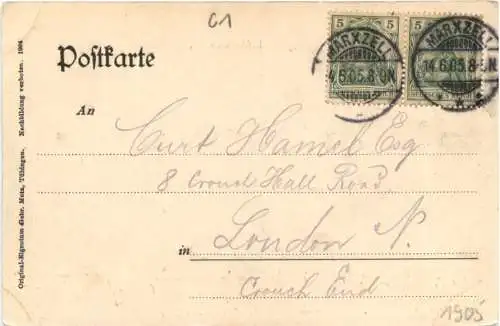 C1
5 5 5
Postkarte
MARXZELL
14.6.05.8-9N.
MARXZELL
14.6.05.8-9N.
An
Curt Hamel Esq
8 Crouch Hall Road
in London N.
Crouch End
1905
Original-Eigentum Gebr. Metz, Tübingen. Nachbildung verboten. 1904